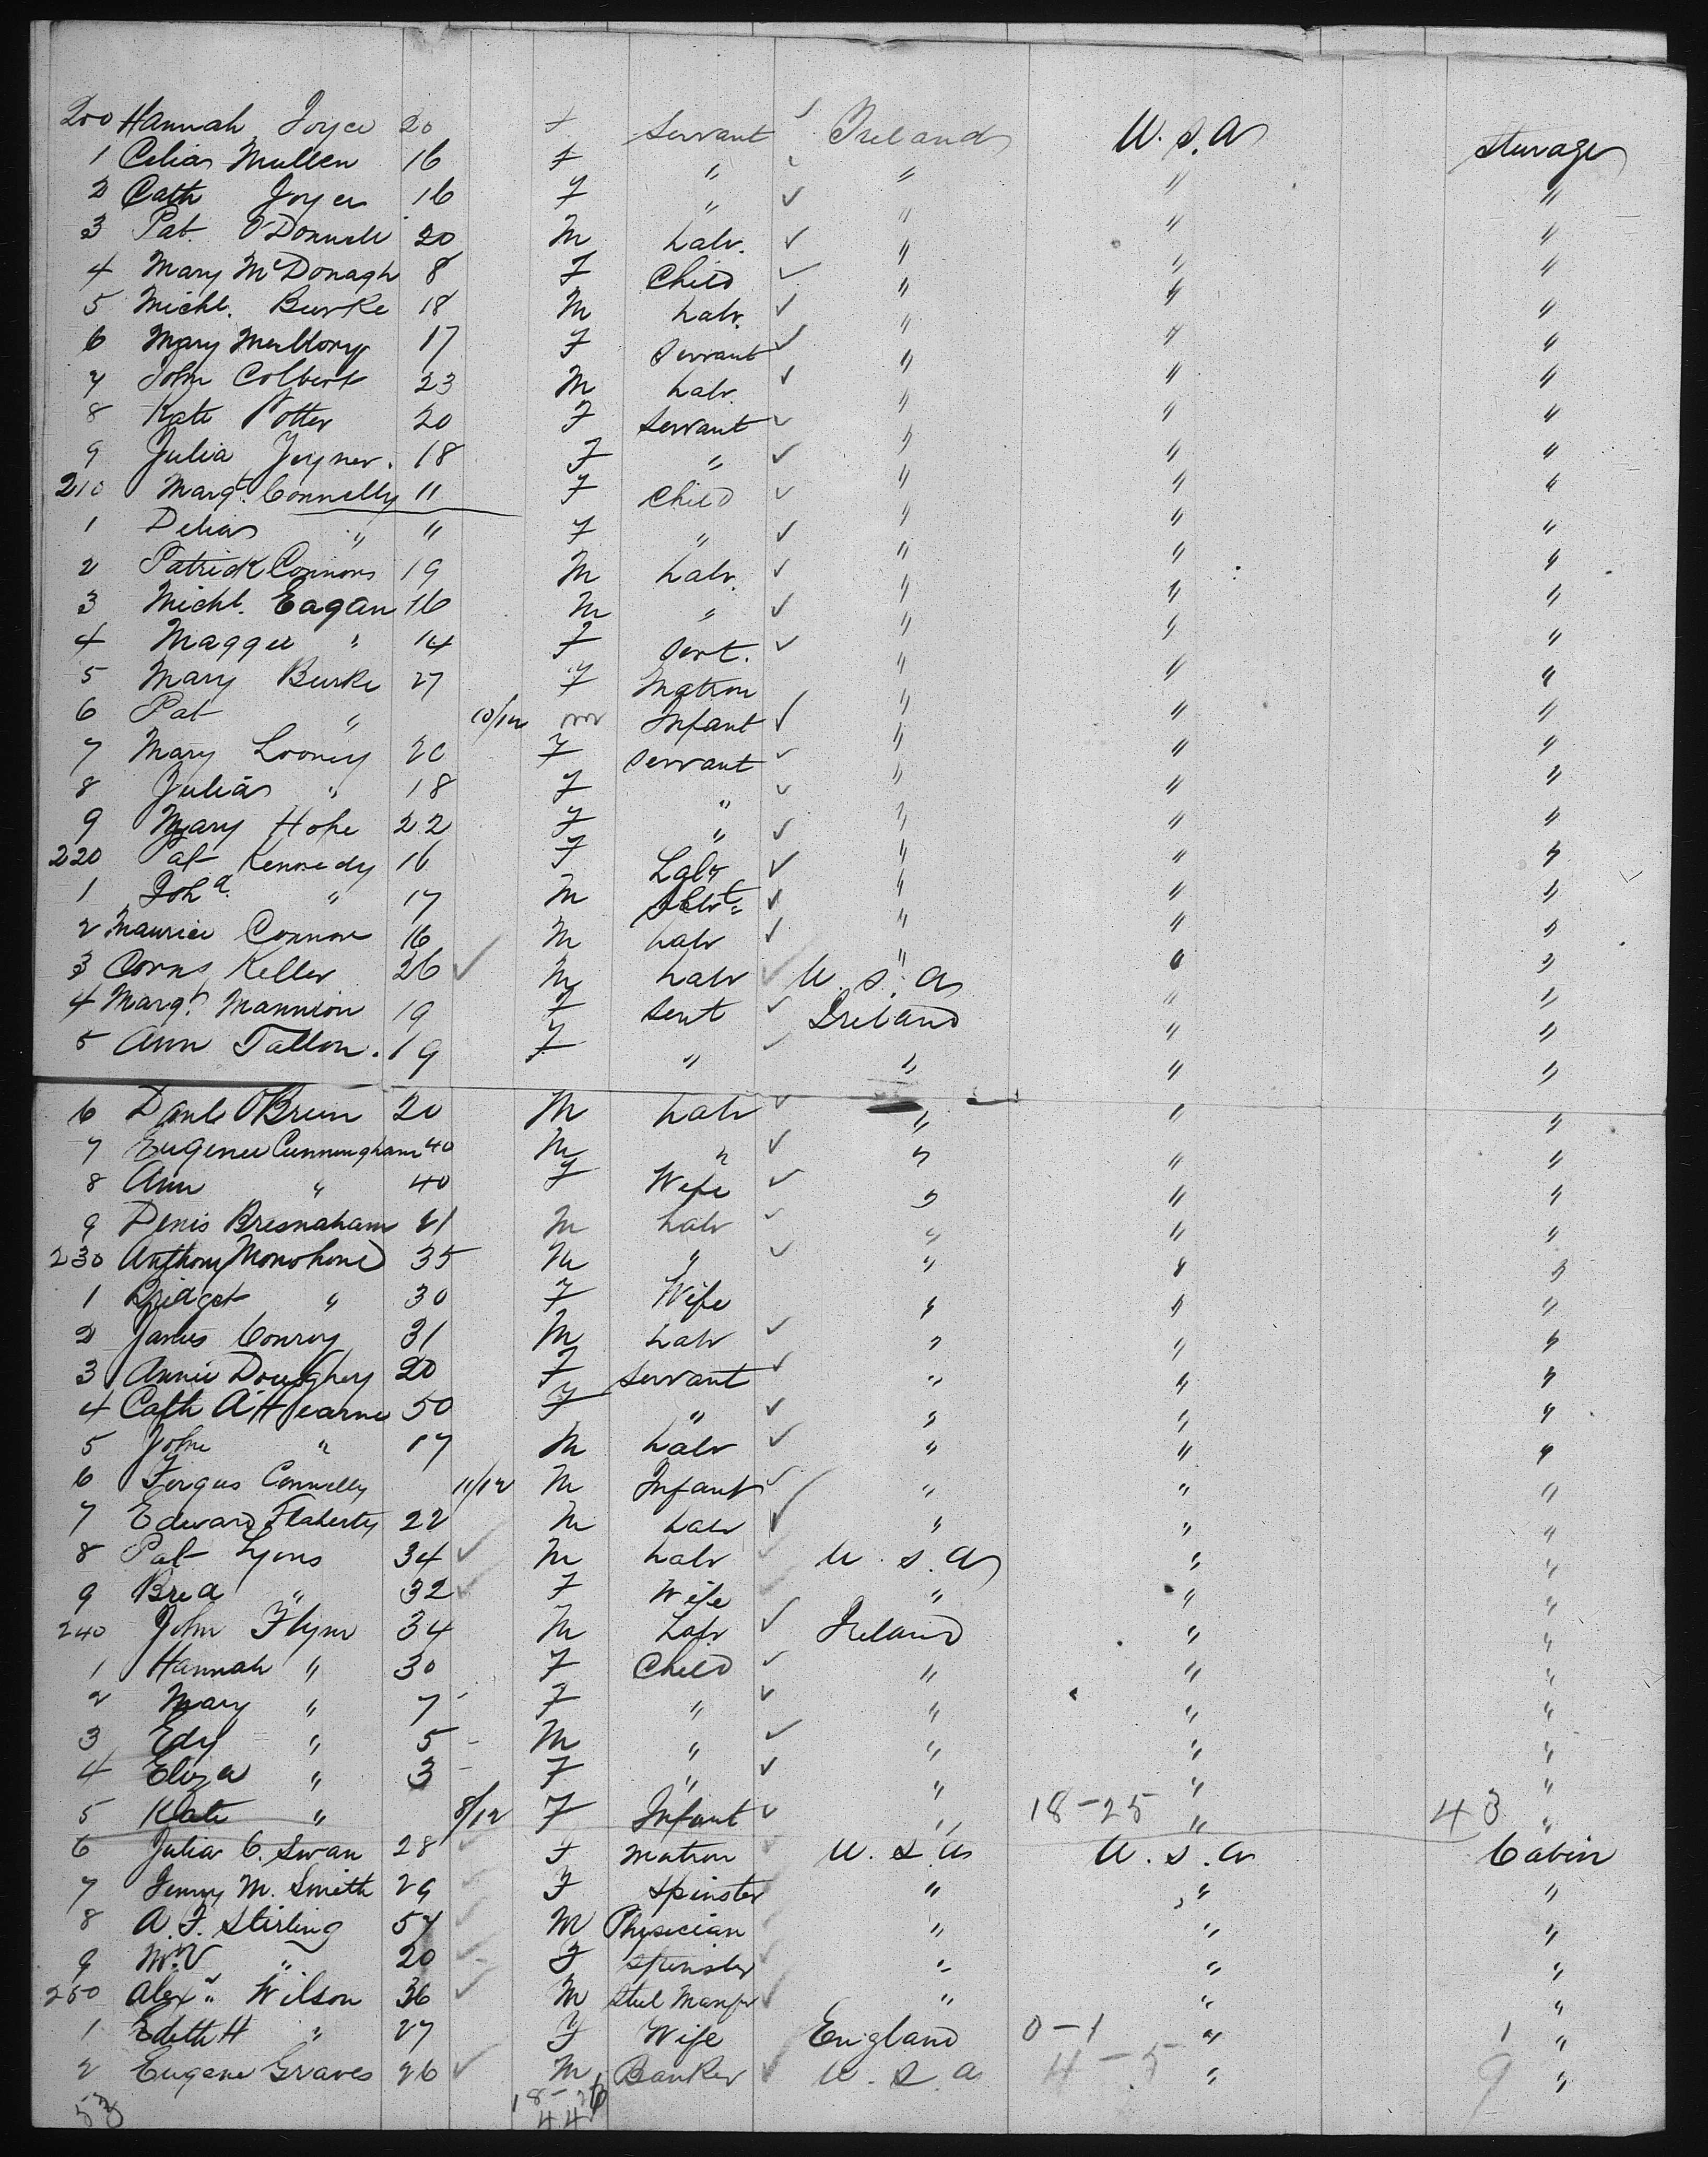 200 Hannah Joyce 20 F Servant ✓ Ireland U.S.A Sterage
1 Celia Mullen 16 F " ✓ " " "
2 Cath Joyce 16 F " ✓ " " "
3 Pat. O'Donnell 20 M Labr. ✓ " " "
4 Mary McDonagh 8 F Child ✓ " " "
5 Michl. Burke 18 M Labr. ✓ " " "
6 Mary 17 F Servant ✓ " " "
7 John Colbert 23 M Labr. ✓ " " "
8 Kate Potter 20 F Servant ✓ " " "
9 Julia Joyner. 18 F " ✓ " " "
210 Margt. Connelly 11 F Child ✓ " " "
1 Delia " " F " ✓ " " "
2 Patrick Connors 19 M Labr. ✓ " " "
3 Michl. Eagan 16 M " ✓ " " "
4 Maggie " 14 F Sert. ✓ " " "
5 Mary Burke 27 F Matron " " "
6 Pat " 10/12 m Infant ✓ " " "
7 Mary Looney 20 F Servant ✓ " " "
8 Julia " 18 F " ✓ " " "
9 Mary Hope 22 F " ✓ " " "
220 Pat Kennedy 16 F Labr ✓ " " "
1 Joha. " 17 M ✓ " " "
2 Maurice Connor 16 M Labr ✓ " " "
3 Corns Keller 26 ✓ M Labr ✓ U.S.A " "
4 Margt. Mannion 19 F Sert ✓ Ireland " "
5 Ann Tallon. 19 F " ✓ " " "
6 Danl O'Brien 20 M Labr ✓ " " "
7 Eugene Cunningham 40 M " ✓ " " "
8 Ann " 40 F Wife ✓ " " "
9 Denis Bresnaham 21 M Labr ✓ " " "
230 Anthony Monohone 35 M " ✓ " " "
1 Bridget " 30 F Wife " " "
2 James Conroy 31 M Labr ✓ " " "
3 Annie Doughery 20 F Servant ✓ " " "
4 Cath A'Hearne 50 F " ✓ " " "
5 John " 17 M Labr ✓ " " "
6 Fergus Connelly 11/12 M Infant ✓ " " "
7 Edward Flaherty 22 M Labr ✓ " " "
8 Pat Lyons 34 ✓ M Labr ✓ U.S.A " "
9 Brid " 32 ✓ F Wife ✓ " " "
240 John Flynn 34 M Labr ✓ Ireland " "
1 Hannah " 30 F Child ✓ " " "
2 Mary " 7 - F " ✓ " " "
3 Edy " 5 - M " ✓ " " "
4 Eliza " 3 - F " ✓ " " "
5 Kate " 8/12 F Infant ✓ " 18-25 " 43 "
6 Julia C. Swan 28 ✓ F Matron ✓ U.S.A U.S.A Cabin
7 Jenny M. Smith 29 ✓ F Spinster " " "
8 A.F. Stirling 57 ✓ M Physician ✓ " " "
9 " 20 ✓ F Spinster ✓ " " "
250 Alexr. Wilson 36 ✓ M Steel Manfr ✓ " " "
1 Edith H " 27 F Wife England 0-1 " 1 "
2 Eugene Graves 26 ✓ M Banker ✓ U.S.A 4-5 " 9 "
53 18-26
44